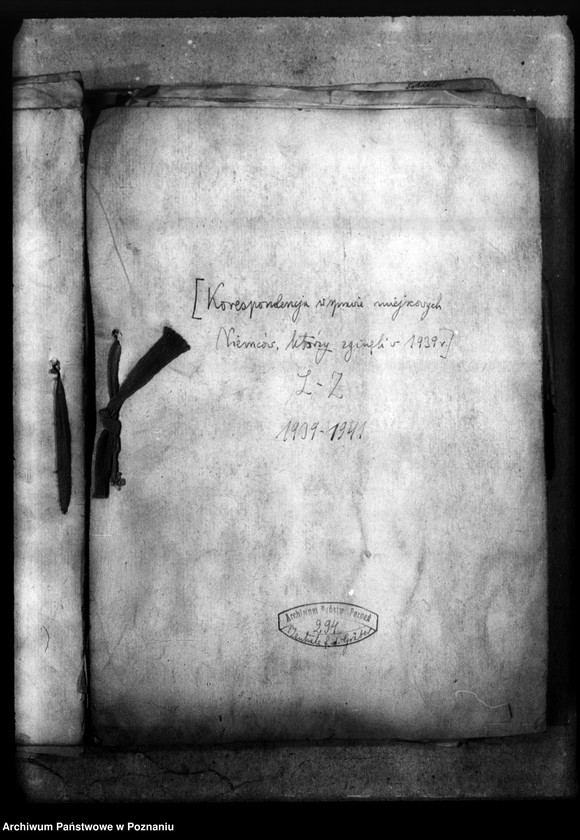 [Korespondencja w sprawie miejscowych
Niemców, którzy zginęli w 1939 r]
L-Z
1939-1941
Archiwum Państw. Poznań
294
Zentrale f. d. Gräber
Archiwum Państwowe w Poznaniu